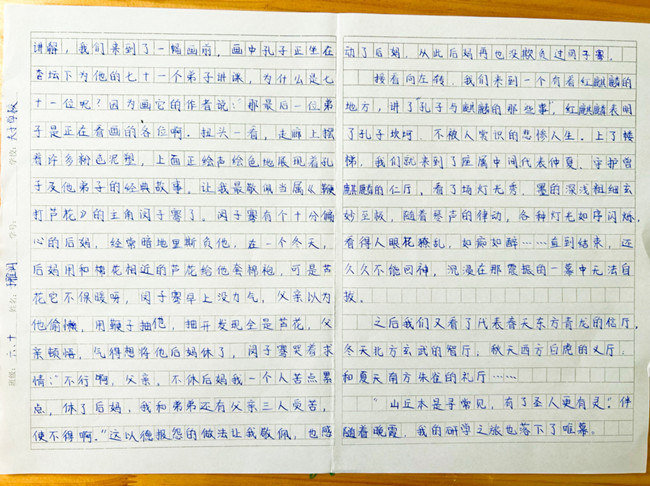 讲解，我们来到了一幅画前，画中孔子正坐在
杏坛下为他的七十一个弟子讲课，为什么是七
十一位呢？因为画它的作者说："那最后一位弟
子是正在看画的各位啊。抬头一看，走廊上摆
着许多粉色泥塑，上面正绘声绘色地展现着孔
子及他弟子的经典故事。让我最敬佩当属《鞭
打芦花》的主角闵子骞了。闵子骞有个十分偏
心的后妈，经常暗地里欺负他，在一个冬天，
后妈用和棉花相近的芦花给他套棉袍，可是芦
花它不保暖呀，闵子骞早上没力气，父亲以为
他偷懒，用鞭子抽他，抽开发现全是芦花，父
亲顿悟，气得想将他后妈休了，闵子骞哭着求
情："不行啊，父亲，不休后妈我一个人苦点累
点，休了后妈，我和弟弟还有父亲三人受苦，
使不得啊。"这以德报怨的做法让我敬佩，也感
动了后妈，从此后妈再也没欺负过闵子骞。
接着向左转，我们来到一个有着红麒麟的
地方，讲了"孔子与麒麟的那些事"，红麒麟表明
了孔子坎坷、不被人赏识的悲惨人生。上了楼
梯，我们就来到了座属中间代表仲夏、守护兽
麒麟的仁厅，看了场灯光秀，墨的深浅粗细玄
妙至极，随着琴声的律动，各种灯光如序闪烁，
看得人眼花缭乱，如痴如醉……直到结束，还
久久不能回神，沉浸在那震撼的一幕中无法自
拔。
之后我们又看了代表春天东方青龙的信厅，
冬天北方玄武的智厅，秋天西方白虎的义厅，
和夏天南方朱雀的礼厅……
"山丘本是寻常见，有了圣人更有灵"。伴
随着晚霞，我的研学之旅也落下了帷幕。
班级：六、十
姓名：
学号：
学校：